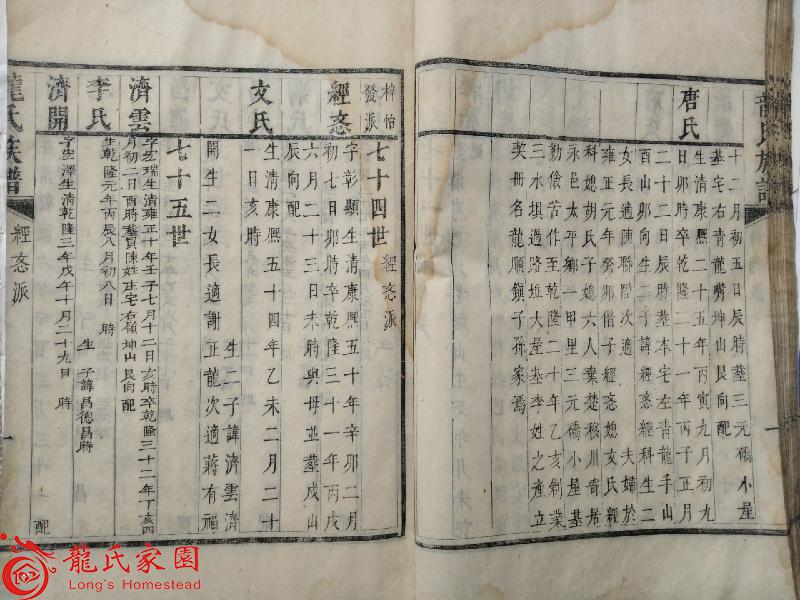 龍氏族譜
十二月初五日辰時塟三元僑小屋
基宅右青龍嘴坤山艮向配
唐氏
生清康熈二十五年丙寅九月初九
日卯時卒乾隆二十一年丙子正月
二十二日辰時塟本宅左青龍手山
酉山卯向生二子諱經忞經科生二
女長適陳聯階次適 夫婦於
雍正元年癸卯偕子經忞媳文氏經
科媳胡氏子媳六人棄楚移川寄居
永邑太平鄉一甲里三元僑小屋基
勤儉苦作至乾隆二十年乙亥剏業
三水埧過路垇大屋基李姓之產立
契冊名龍順鎭子孫家焉
梓怡發派
七十四世 經忞派
經忞
字彰顯生清康熈五十年辛卯二月
初七日卯時卒乾隆三十一年丙戌
六月二十三日未時與母並塟戌山
辰向配
文氏
生清康熈五十四年乙未二月二十
一日亥時 生二子諱濟雲濟
開生二女長適謝正龍次適蔣有福
七十五世
濟雲
字宏瑞生清雍正十年壬子七月十二日亥時卒乾隆三十二年丁亥四
月初二日酉時塟買陳姓正宅右嶺坤山艮向配
李氏
生乾隆元年丙辰八月初八日 時 生 子諱昌德昌時
濟開
字宏澤生清乾隆三年戊午十月二十九日 時 配
龍氏族譜
經忞派
一
龍氏家園
Long's Homestead